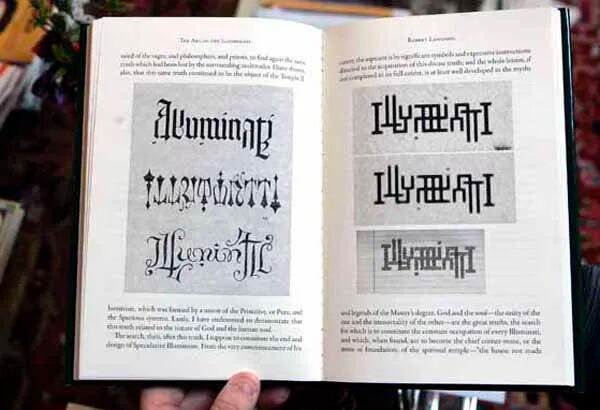 THE ART OF THE ILLUMINATI
need of the sages, and philosophers, and priests, to find again the same
truth which had been lost by the surrounding multitudes. I have shown,
also, that this same truth continued to be the object of the Temple Il
Illuminati
ILLUMINATI
Illuminati
luminism, which was formed by a union of the Primitive, or Pure, and
the Spurious systems. Lastly, I have endeavored to demonstrate that
this truth related to the nature of God and the human soul.
The search, then, after this truth, I suppose to constitute the end and
design of Speculative Illuminism. From the very commencement of his
ROBERT LANGDON
career, the aspirant is by significant symbols and expressive instructions
directed to the acquisition of this divine truth; and the whole lesson, if
not completed in its full extent, is at least well developed in the myths
Illuminati
Illuminati
Illuminati
and legends of the Master's degree. God and the soul—the unity of the
one and the immortality of the other—are the great truths, the search
for which is to constitute the constant occupation of every Illuminati,
and which, when found, are to become the chief corner-stone, or the
stone of foundation, of the spiritual temple—"the house not made